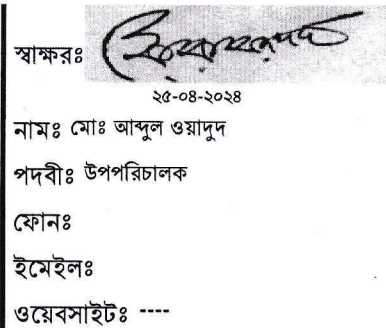 স্বাক্ষরঃ
২৫-০৪-২০২৪
নামঃ মোঃ আব্দুল ওয়াদুদ
পদবীঃ উপপরিচালক
ফোনঃ
ইমেইলঃ
ওয়েবসাইটঃ ----